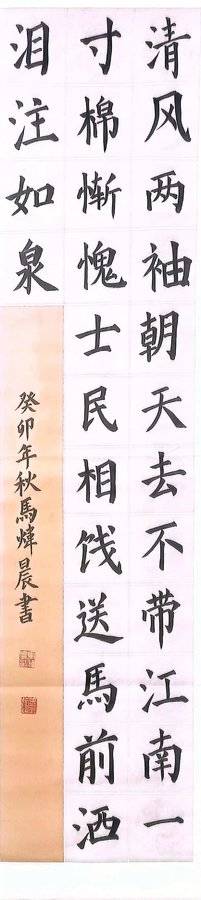 清风两袖朝天去不带江南一
寸棉慚愧士民相饯送馬前洒
泪注如泉
癸卯年秋馬煒晨書